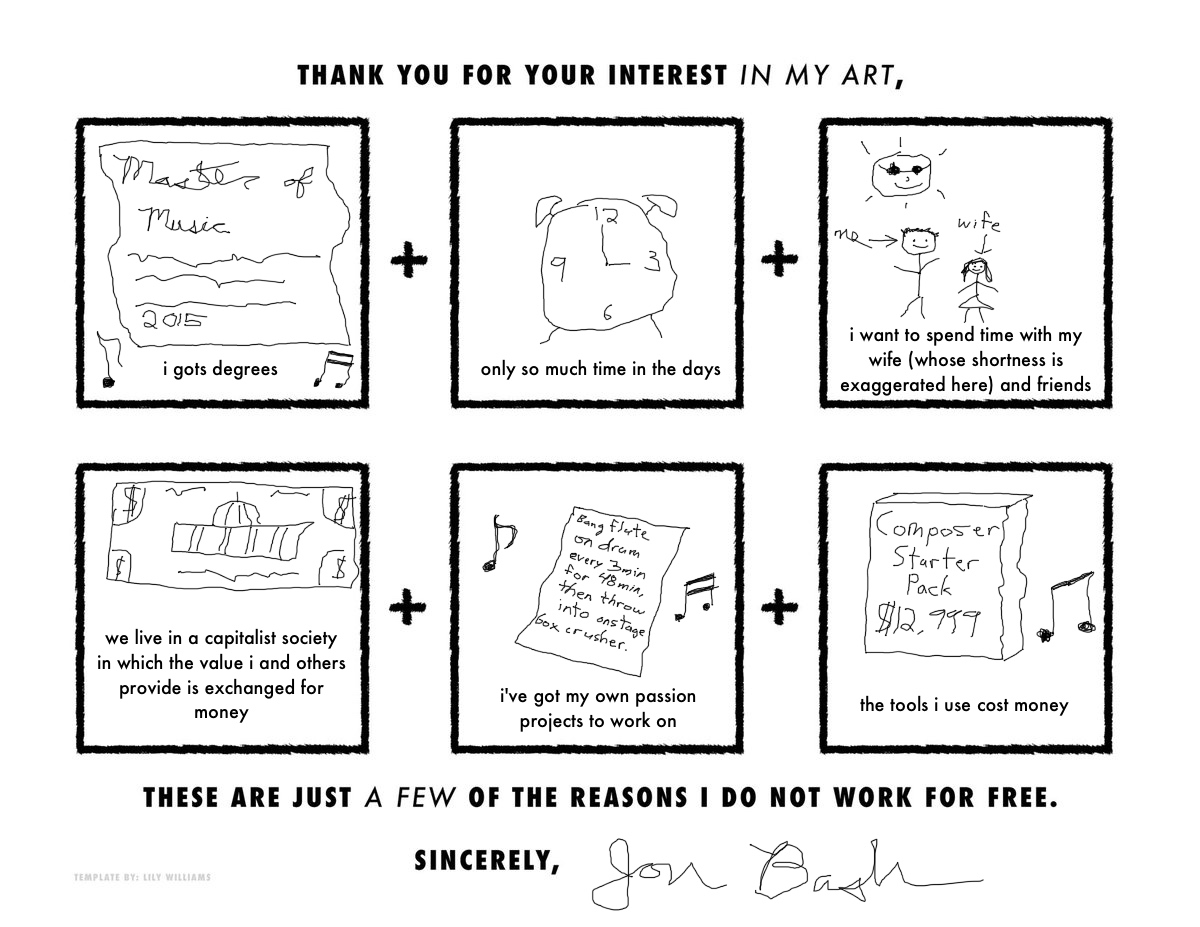 THANK YOU FOR YOUR INTEREST IN MY ART,
Master of
Music
2015
i gots degrees
12
9
3
6
only so much time in the days
me
wife
i want to spend time with my
wife (whose shortness is
exaggerated here) and friends
$
$
$
$
we live in a capitalist society
in which the value i and others
provide is exchanged for
money
Bang flute
on drum
every 3min
for 48min,
then throw
into onstage
box crusher.
i've got my own passion
projects to work on
Composer
Starter
Pack
$12,999
the tools i use cost money
THESE ARE JUST A FEW OF THE REASONS I DO NOT WORK FOR FREE.
SINCERELY, Jon Bash
TEMPLATE BY: LILY WILLIAMS